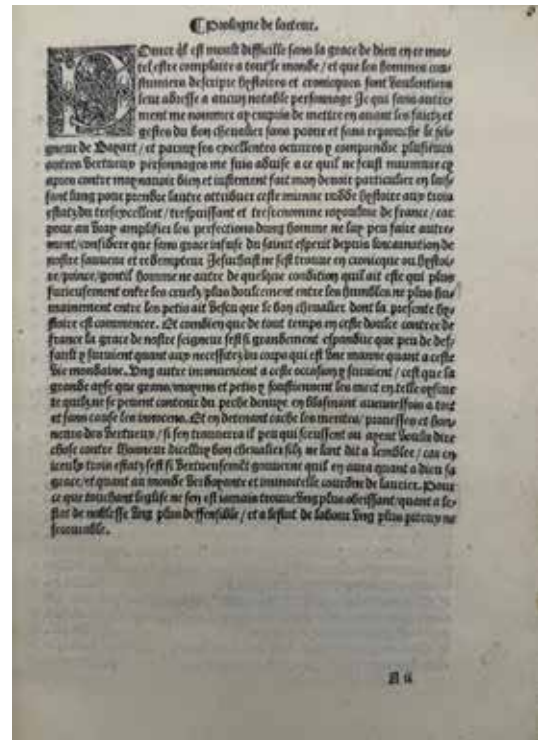 ¶ Prologue de lacteur.
Ource q̄l est moult difficille sans la grace de dieu en ce mor/
tel estre complaire a tout le monde / et que les hommes cou/
stumiers descripre hystoires et cronicques sont voulentiers
leur adresse a aucun notable personnage Je qui sans autre/
ment me nommer ay empris de mettre en auant les faictz et
gestes du bon cheualier sans paour et sans reprouche le sei/
gneur de Bayart / et parmy ses excellentes oeuures y comprendre plusieurs
autres vertueux personnages me suis aduise a ce quil ne feust murmure cy
apres contre moy nauoir bien et iustement fait mon deuoir particulier en lais/
sant lung pour prendre lautre attribuer ceste mienne hystoire aux trois
estatz du tresexcellent / trespuissant et tresrenomme royaulme de france / car
pour au vray amplifier les perfections dung homme ne lay peu faire autre/
ment / considere que sans grace infuse du saint esperit depuis lincarnation de
nostre sauueur et redempteur Jesuchrist ne sest trouue en cronicque ou hystoi/
re / prince / gentil homme ne autre de quelque condition quil ait este qui plus
furieusement entre les cruelz / plus doulcement entre les humbles ne plus hu/
mainement entre les petis ait vescu que le bon cheualier dont la presente hy/
stoire est commencee. Et combien que de tout temps en ceste doulce contree de
france la grace de nostre seigneur sest si grandement espandue que peu de def/
fault y suruient quant aux necessitez du corps qui est vne manne quant a ceste
vie mondaine. Vng autre inconuenient a ceste occasion y suruient / cest que la
grande ayse que grans / moyens et petis y soustiennent les mect en telle oysiue
te quilz ne se peuent contenir du peche denuye en blasmant aucunesfois a tort
et sans cause les innocens. Et en detenant cache les merites / prouesses et hon/
neurs des vertueux / si sen trouuera il peu qui sceussent ou ayent voulu dire
chose contre lhonneur dicelluy bon cheualier silz ne lont dit a lemblee / car en
iceulx trois estatz sest si vertueusemēt gouuerne quil en aura quant a dieu sa
grace / et quant au monde verdoyante et immortelle courōne de laurier. Pour
ce que touchant leglise ne sen est iamais trouue vng plus obeissant / quant a le/
stat de noblesse vng plus deffensible / et a lestat de labour vng plus piteux ne
secourable.
A ii